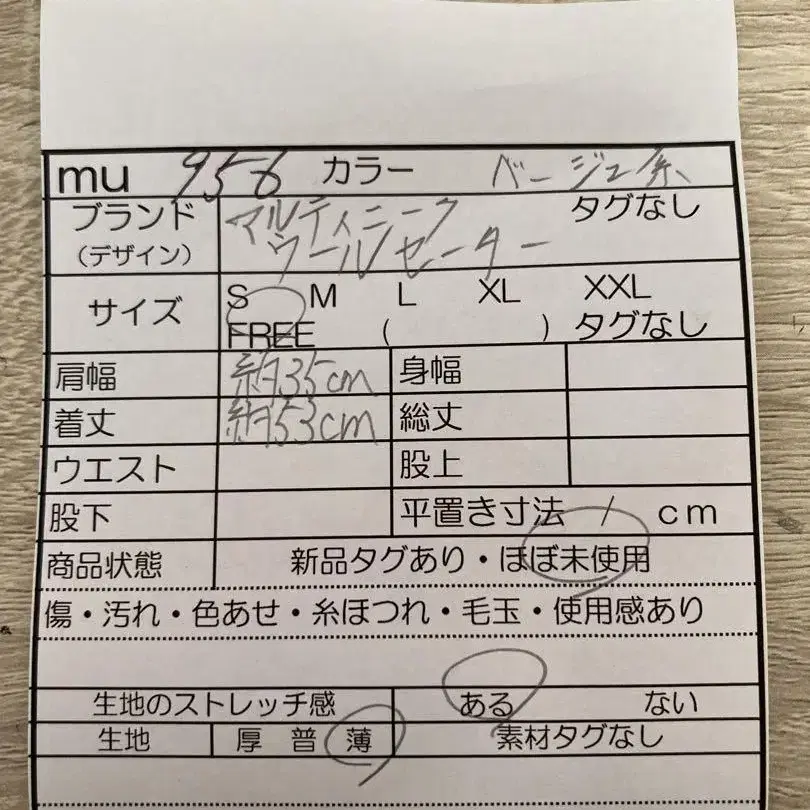 mu 956 カラー ベージュ系
ブランド マルティニーク タグなし
(デザイン) ウールセーター
サイズ S M L XL XXL
FREE ( ) タグなし
肩幅 約35cm 身幅
着丈 約53cm 総丈
ウエスト 股上
股下 平置き寸法 / cm
商品状態 新品タグあり・ほぼ未使用
傷・汚れ・色あせ・糸ほつれ・毛玉・使用感あり
生地のストレッチ感 ある ない
生地 厚 普 薄 素材タグなし